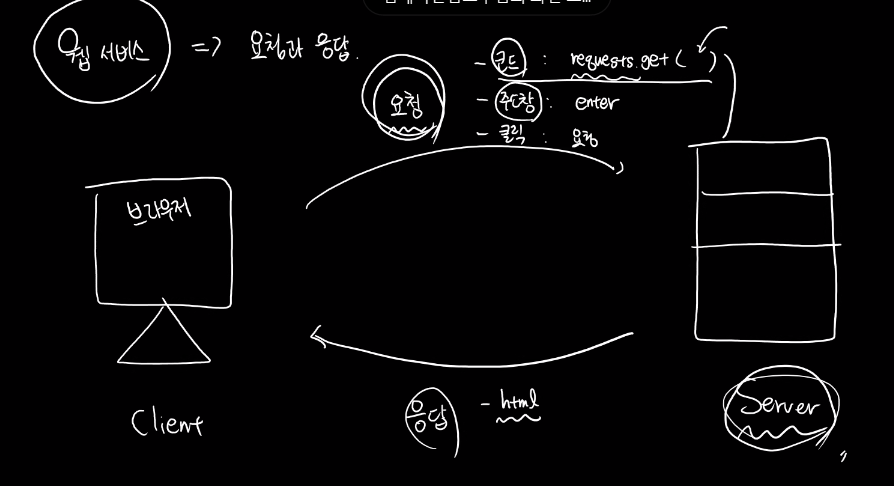 웹 서비스 => 요청과 응답.
요청
- 코드 : requests.get( )
- 주소창 : enter
- 클릭 : 요청
브라우저
Client
응답 - html
Server